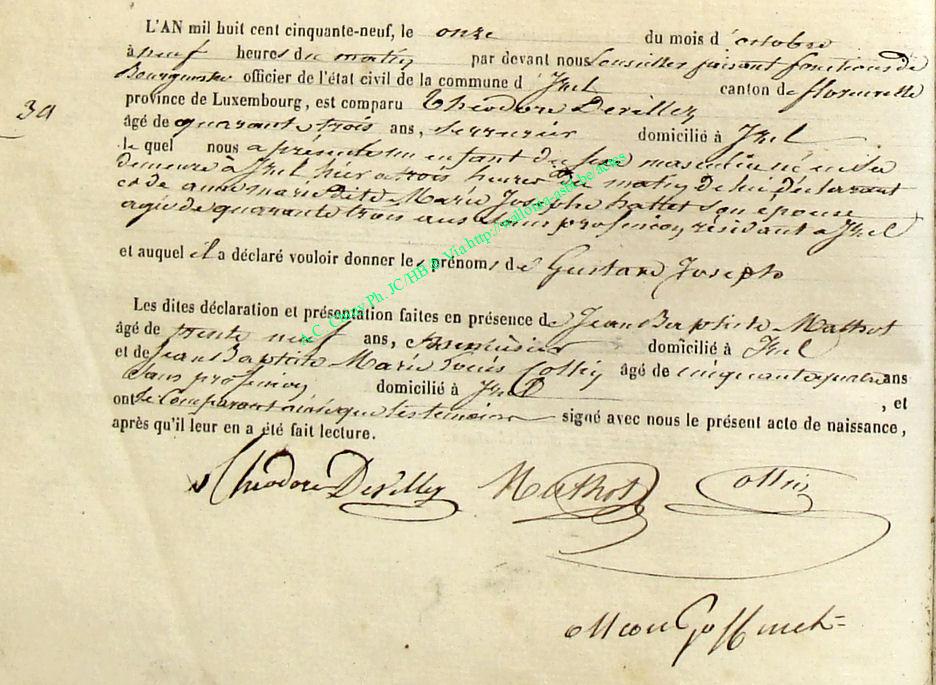 L'AN mil huit cent cinquante-neuf, le onze du mois d'octobre
à neuf heures du matin par devant nous Conseiller faisant fonctions de
Bourgmestre officier de l'état civil de la commune d'Izel canton de florenville
39
province de Luxembourg, est comparu Théodore Devillez
âgé de quarante trois ans, Serrurier domicilié à Izel
le quel nous a présenté un enfant du sexe masculin né en sa
demeure à Izel hier à trois heures du matin de lui déclarant
et de anne marie dite Marie Josephe hattet son épouse
agée de quarante trois ans sans profession, résidant à Izel
et auquel il a déclaré vouloir donner les prénoms de Gustave Joseph
Les dites déclaration et présentation faites en présence de Jean Baptiste Mathot
âgé de trente neuf ans, menuisier domicilié à Izel
et de Jean Baptiste Marie Louis Collin âgé de cinquante quatre ans
sans profession domicilié à Izel , et
ont le Comparant ainsi que les témoins signé avec nous le présent acte de naissance,
après qu'il leur en a été fait lecture.
Théodore Devillez Mathot Collin
Goffinet
A.C. Ph. JC/HB Via http://wallonia-asbl.be/actes